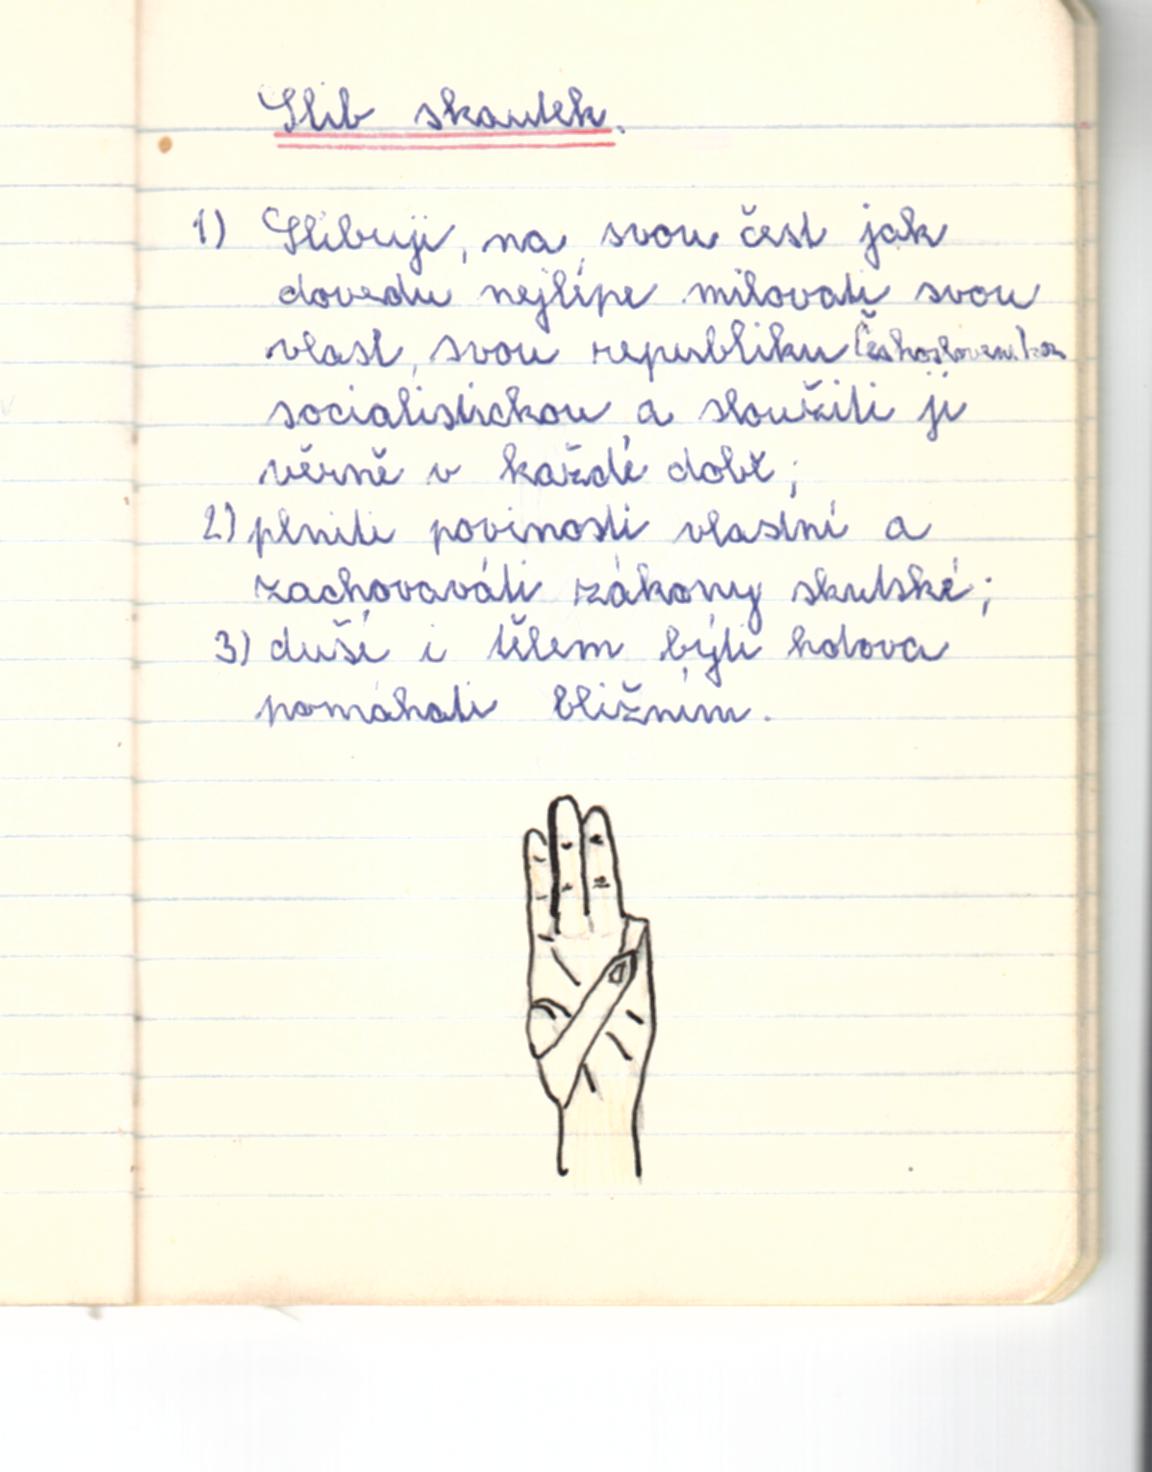 Slib skautek.
1) Slibuji, na svou čest jak
dovedu nejlépe milovati svou
vlast, svou republiku Českosloven.kou
socialistickou a sloužiti jí
věrně v každé době;
2) plniti povinosti vlastní a
zachovaváti zákony skutské;
3) duší i tělem býti hotova
pomáhati bližním.